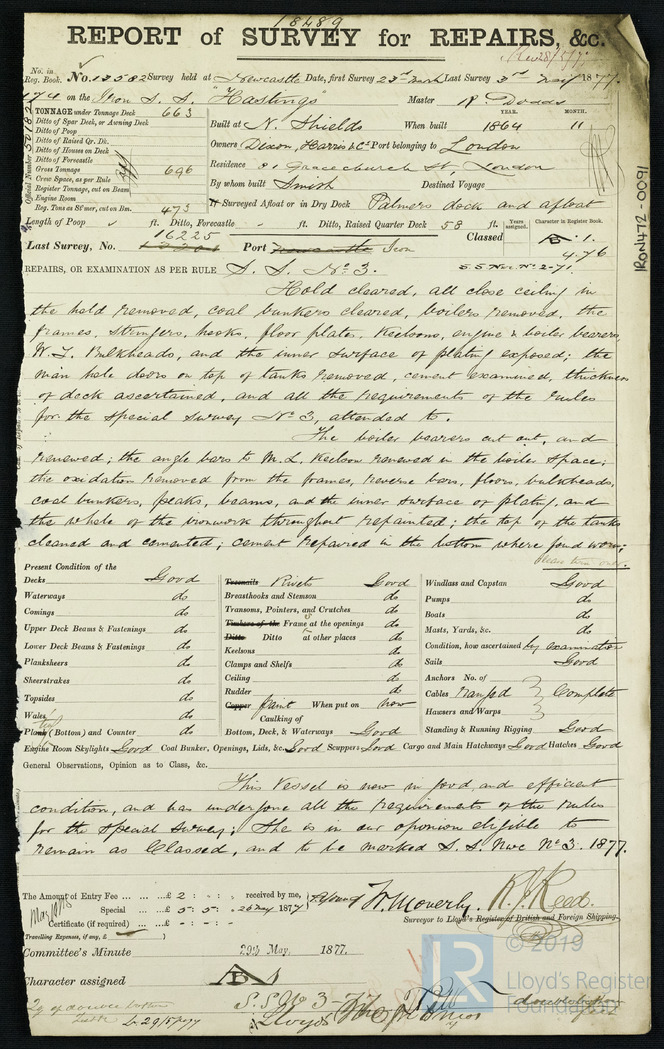 18489
REPORT of SURVEY for REPAIRS, &c.
No. in Reg. Book. No. 13582 Survey held at Newcastle Date, first Survey 23rd March Last Survey 3rd May 1877.
174 on the Iron S. S. "Hastings" Master R. Dodds
TONNAGE under Tonnage Deck 663
Ditto of Spar Deck, or Awning Deck
Ditto of Poop
Ditto of Raised Qr. Dk.
Ditto of Houses on Deck
Ditto of Forecastle
Gross Tonnage 696
Crew Space, as per Rule
Register Tonnage, cut on Beam
Engine Room
Reg. Tons as St'mer, cut on Bm. 473
Official Number
Built at N. Shields When built 1864 MONTH. 11
YEAR.
Owners Dixon, Harris & Co Port belonging to London
Residence 81 Gracechurch St, London
By whom built Smith Destined Voyage
If Surveyed Afloat or in Dry Dock Palmers dock and afloat
Length of Poop ft. Ditto, Forecastle ft. Ditto, Raised Quarter Deck 58 ft.
Years assigned. Character in Register Book.
16225
Last Survey, No. Port Iron Classed B.1.
4.76
REPAIRS, OR EXAMINATION AS PER RULE S. S. No 3. S.S. Nwc. No. 2-71.
Hold cleared, all close ceiling in
the hold removed, coal bunkers cleared, boilers removed, the
frames, stringers, hooks, floor plates, Keelsons, engine & boiler bearers,
W. T. Bulkheads, and the inner surface of plating exposed; the
man hole doors on top of tanks removed, cement examined, thickness
of deck ascertained, and all the requirements of the rules
for the special survey No 3, attended to.
The boiler bearers cut out, and
renewed; the angle bars to M. L. Keelson renewed in the boiler space;
the oxidation removed from the frames, reverse bars, floors, bulkheads,
coal bunkers, peaks, beams, and the inner surface of plating, and
the whole of the ironwork throughout repainted; the top of the tanks
cleaned and cemented; cement repaired in the bottom where found worn;
please turn over.
Present Condition of the
Decks Good
Waterways do
Comings do
Upper Deck Beams & Fastenings do
Lower Deck Beams & Fastenings do
Planksheers do
Sheerstrakes do
Topsides do
Wales do
Plank (Bottom) and Counter do
Treenails Rivets Good
Breasthooks and Stemson do
Transoms, Pointers, and Crutches do
Timbers of the Frame at the openings do
Ditto Ditto at other places do
Keelsons do
Clamps and Shelfs do
Ceiling do
Rudder do
Copper Paint When put on now
Caulking of
Bottom, Deck, & Waterways Good
Windlass and Capstan Good
Pumps do
Boats do
Masts, Yards, &c. do
Condition, how ascertained by examination
Sails Good
Anchors No. of
Cables ranged Complete
Hawsers and Warps
Standing & Running Rigging Good
Engine Room Skylights Good Coal Bunker, Openings, Lids, &c. Good Scuppers Good Cargo and Main Hatchways Good Hatches Good
General Observations, Opinion as to Class, &c.
This Vessel is now in good and efficient
condition, and has undergone all the requirements of the rules
for the special survey; She is in our opinion eligible to
remain as Classed, and to be marked S. S. Nwc No 3. 1877.
The Amount of Entry Fee £ 2 : - : - received by me,
Special £ 5 : 5 : - 26 May 1877
Certificate (if required) £ - : - : -
(Travelling Expenses, if any, £ )
W. Moverly. R. J. Reed.
Surveyor to Lloyd's Register of British and Foreign Shipping.
Committee's Minute 29th May, 1877.
Character assigned B
S.S. No 3-77
IRON472-0091
© 2019
LR
Lloyd's Register
Foundation